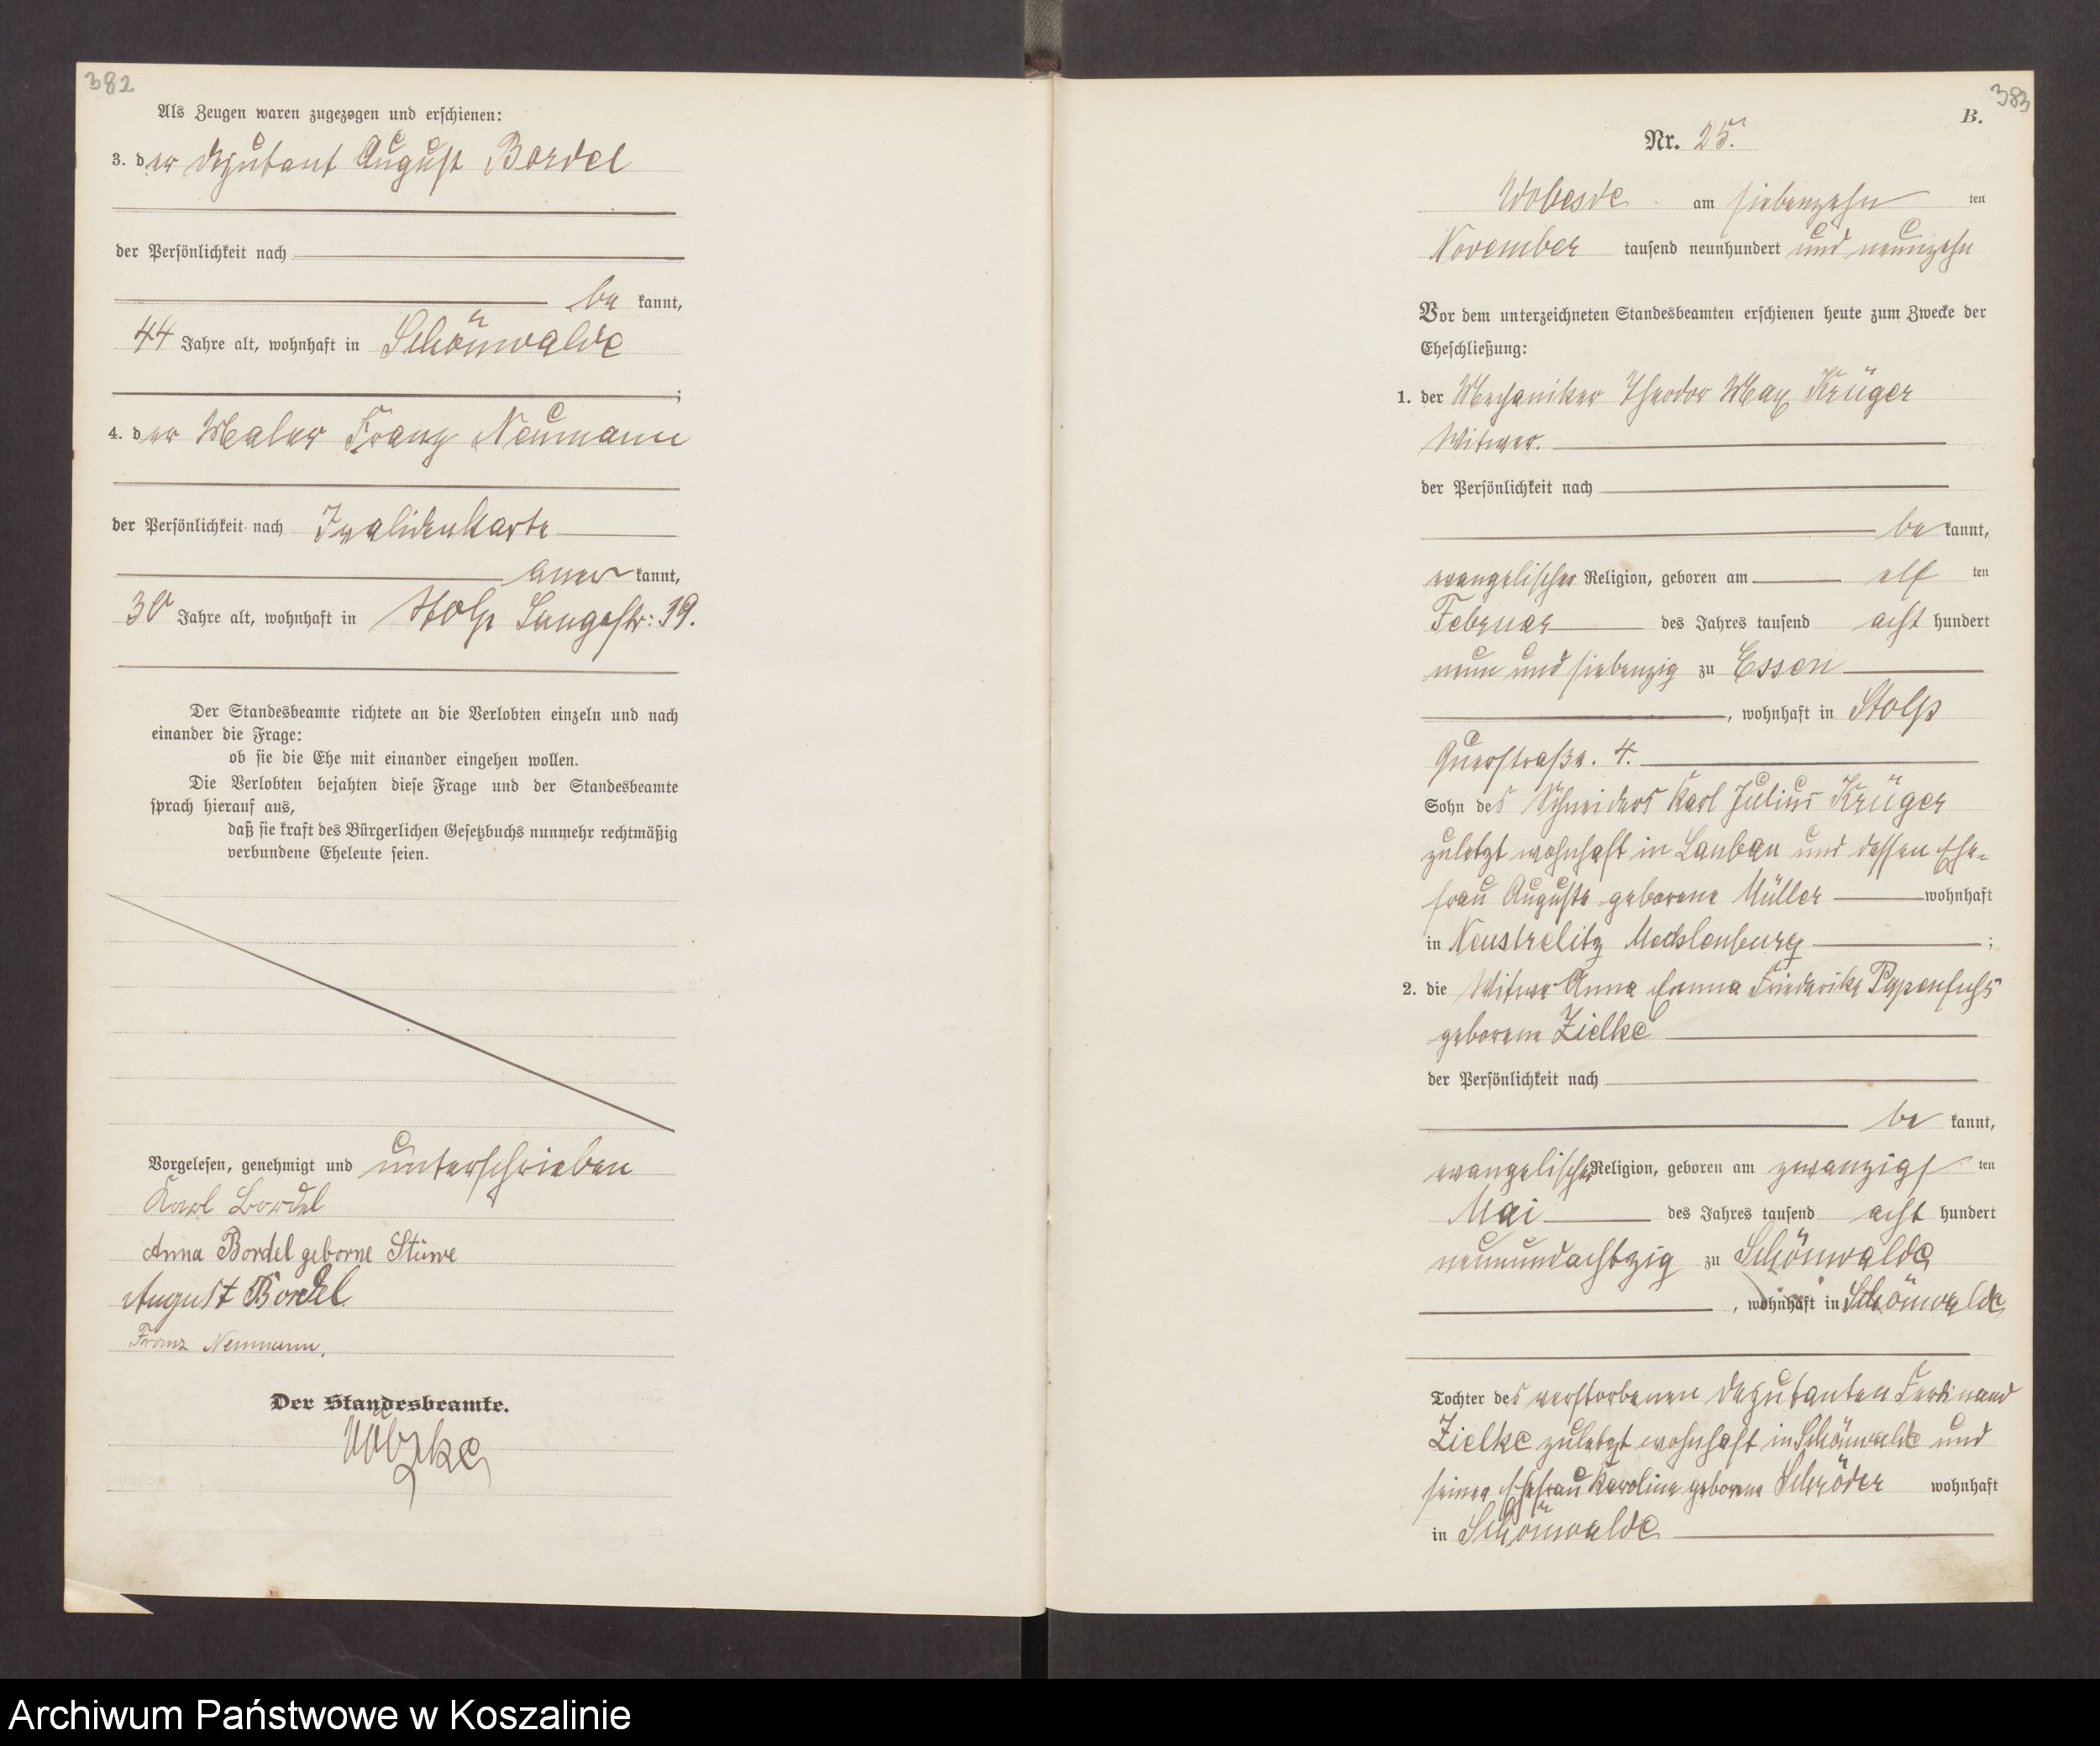 382
Als Zeugen waren zugezogen und erschienen:
3. der Deputant August Bordel
der Persönlichkeit nach
be kannt,
44 Jahre alt, wohnhaft in Schönwalde
;
4. der Maler Franz Neumann
der Persönlichkeit nach Invalidenkarte
aner kannt,
30 Jahre alt, wohnhaft in Stolp Langestr: 39.
Der Standesbeamte richtete an die Verlobten einzeln und nach
einander die Frage:
ob sie die Ehe mit einander eingehen wollen.
Die Verlobten bejahten diese Frage und der Standesbeamte
sprach hierauf aus,
daß sie kraft des Bürgerlichen Gesetzbuchs nunmehr rechtmäßig
verbundene Eheleute seien.
Vorgelesen, genehmigt und unterschrieben
Karl Bordel
Anna Bordel geborne Stüwe
August Bordel
Franz Neumann.
Der Standesbeamte.
383
B.
Nr. 25.
Wobesde am siebenzehn ten
November tausend neunhundert und neunzehn
Vor dem unterzeichneten Standesbeamten erschienen heute zum Zwecke der
Eheschließung:
1. der Mechaniker Theodor Max Krüger
Witwer.
der Persönlichkeit nach
be kannt,
evangelischer Religion, geboren am elf ten
Februar des Jahres tausend acht hundert
neun und siebenzig zu Essen
, wohnhaft in Stolp
Querstraße. 4.
Sohn des Schneiders Karl Julius Krüger
zuletzt wohnhaft in Lauban und dessen Ehe-
frau Auguste geborene Müller wohnhaft
in Neustrelitz Mecklenburg ;
2. die Witwe Anna Emma Friederike Papenfuhs
geborene Zielke
der Persönlichkeit nach
be kannt,
evangelischer Religion, geboren am zwanzigs ten
Mai des Jahres tausend acht hundert
neunundachtzig zu Schönwalde
, wohnhaft in Schönwalde
Tochter des verstorbenen Deputanten Ferdinand
Zielke zuletzt wohnhaft in Schönwalde und
seiner Ehefrau Karoline geborene Schröder wohnhaft
in Schönwalde
Archiwum Państwowe w Koszalinie